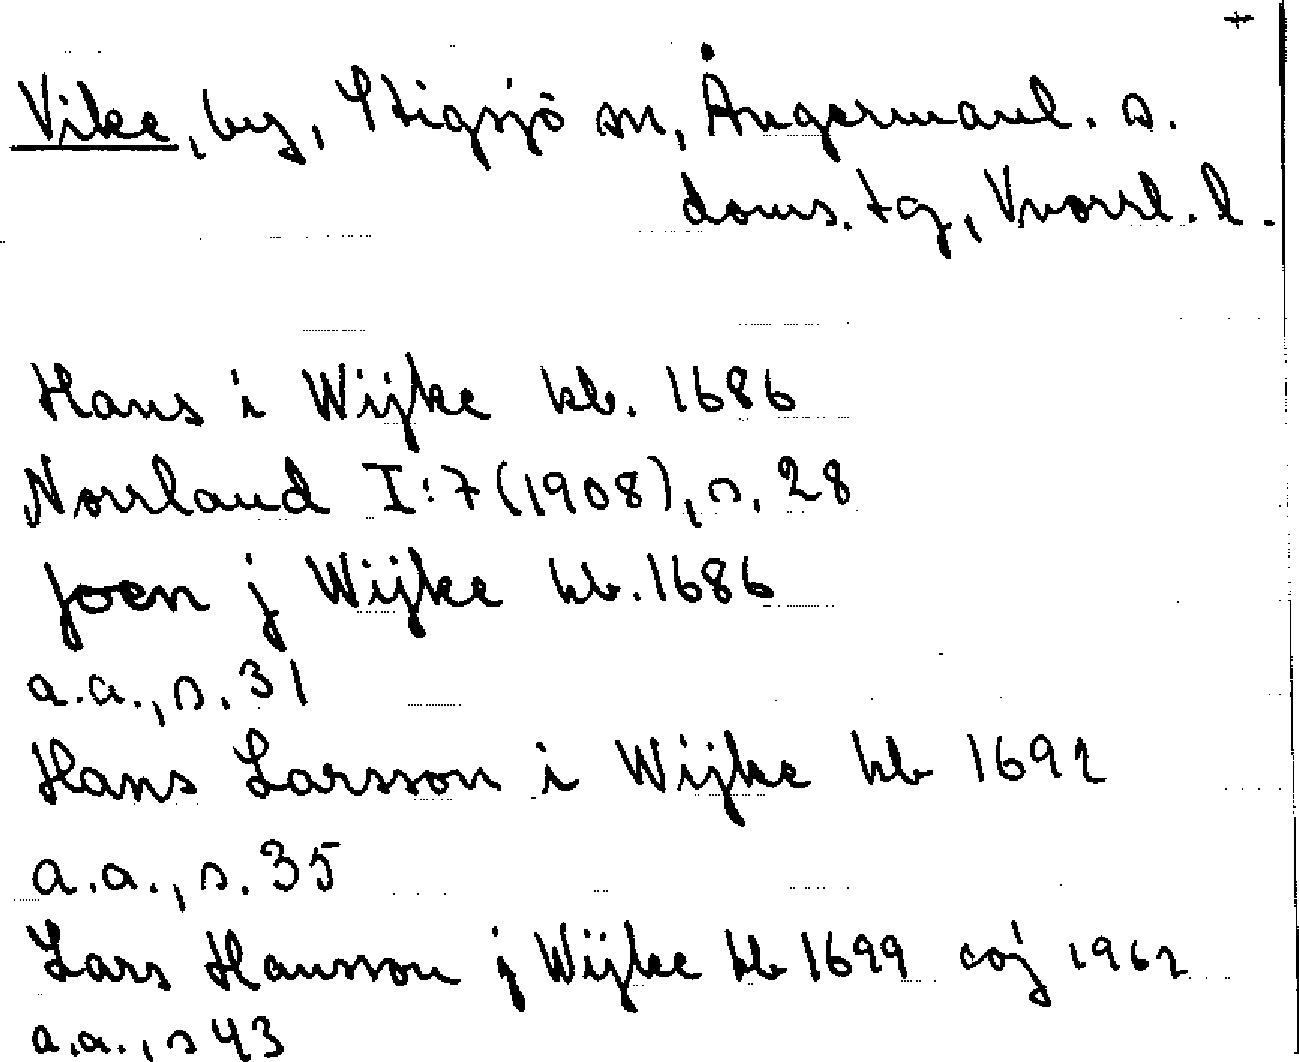 +
Vike, by, Stigsjö sn, Ångermanl. s.
doms. tg, Vnorrl. l.
Hans i Wijke kb. 1686
Norrland I:7 (1908), s. 28
Joen j Wijke kb. 1686
a.a., s. 31
Hans Larsson i Wijke kb 1692
a.a., s. 35
Lars Hansson j Wijke kb 1699 1962
a.a., s 43